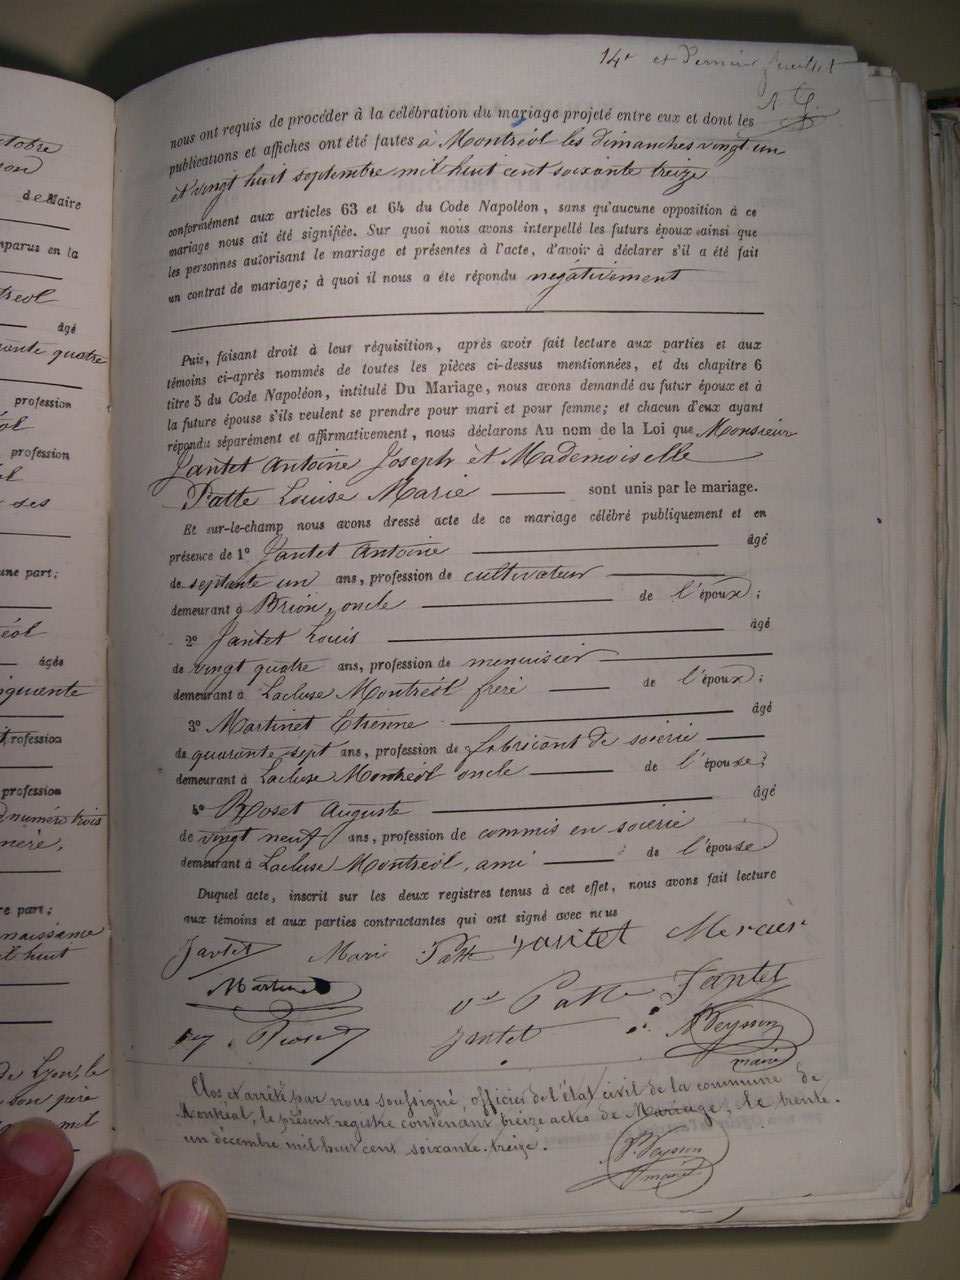 14e et Dernier feuillet
nous ont requis de procéder à la célébration du mariage projeté entre eux et dont les
publications et affiches ont été faites à Montréol les dimanches vingt un
et vingt huit septembre mil huit cent soixante treize
conformément aux articles 63 et 64 du Code Napoléon, sans qu'aucune opposition à ce
mariage nous ait été signifiée. Sur quoi nous avons interpellé les futurs époux ainsi que
les personnes autorisant le mariage et présentes à l'acte, d'avoir à déclarer s'il a été fait
un contrat de mariage; à quoi il nous a été répondu négativement
Puis, faisant droit à leur réquisition, après avoir fait lecture aux parties et aux
témoins ci-après nommés de toutes les pièces ci-dessus mentionnées, et du chapitre 6
titre 5 du Code Napoléon, intitulé Du Mariage, nous avons demandé au futur époux et à
la future épouse s'ils veulent se prendre pour mari et pour femme; et chacun d'eux ayant
répondu séparément et affirmativement, nous déclarons Au nom de la Loi que Monsieur
Jantet Antoine Joseph et Mademoiselle
Patte Louise Marie sont unis par le mariage.
Et sur-le-champ nous avons dressé acte de ce mariage célébré publiquement et en
présence de 1º Jantet Antoine âgé
de septante un ans, profession de cultivateur
demeurant à Brion, oncle de l'époux;
2º Jantet Louis âgé
de vingt quatre ans, profession de menuisier
demeurant à Lacluse Montréol frère de l'époux;
3º Martinet Etienne âgé
de quarante sept ans, profession de fabricant de soierie
demeurant à Lacluse Montréol oncle de l'épouse;
4º Roset Auguste âgé
de vingt neuf ans, profession de commis en soierie
demeurant à Lacluse Montréol, ami de l'épouse
Duquel acte, inscrit sur les deux registres tenus à cet effet, nous avons fait lecture
aux témoins et aux parties contractantes qui ont signé avec nous
Jantet Marie Patte Jantet Mercier
Martinet Patte Jantet
Roset Jantet Beysson
maire
Clos et arrêté par nous soussigné, officier de l'état civil de la commune de
Montréal, le présent registre contenant treize actes de Mariage, le trente.
un décembre mil huit cent soixante-treize.
Beysson
maire
ctobre
de Maire
mparus en la
tréol
âgé
uante quatre
profession
profession
une part;
éol
âgée
nquante
profession
profession
numéro trois
re part;
naissance
il huit
de Lyon, le
son père
mil